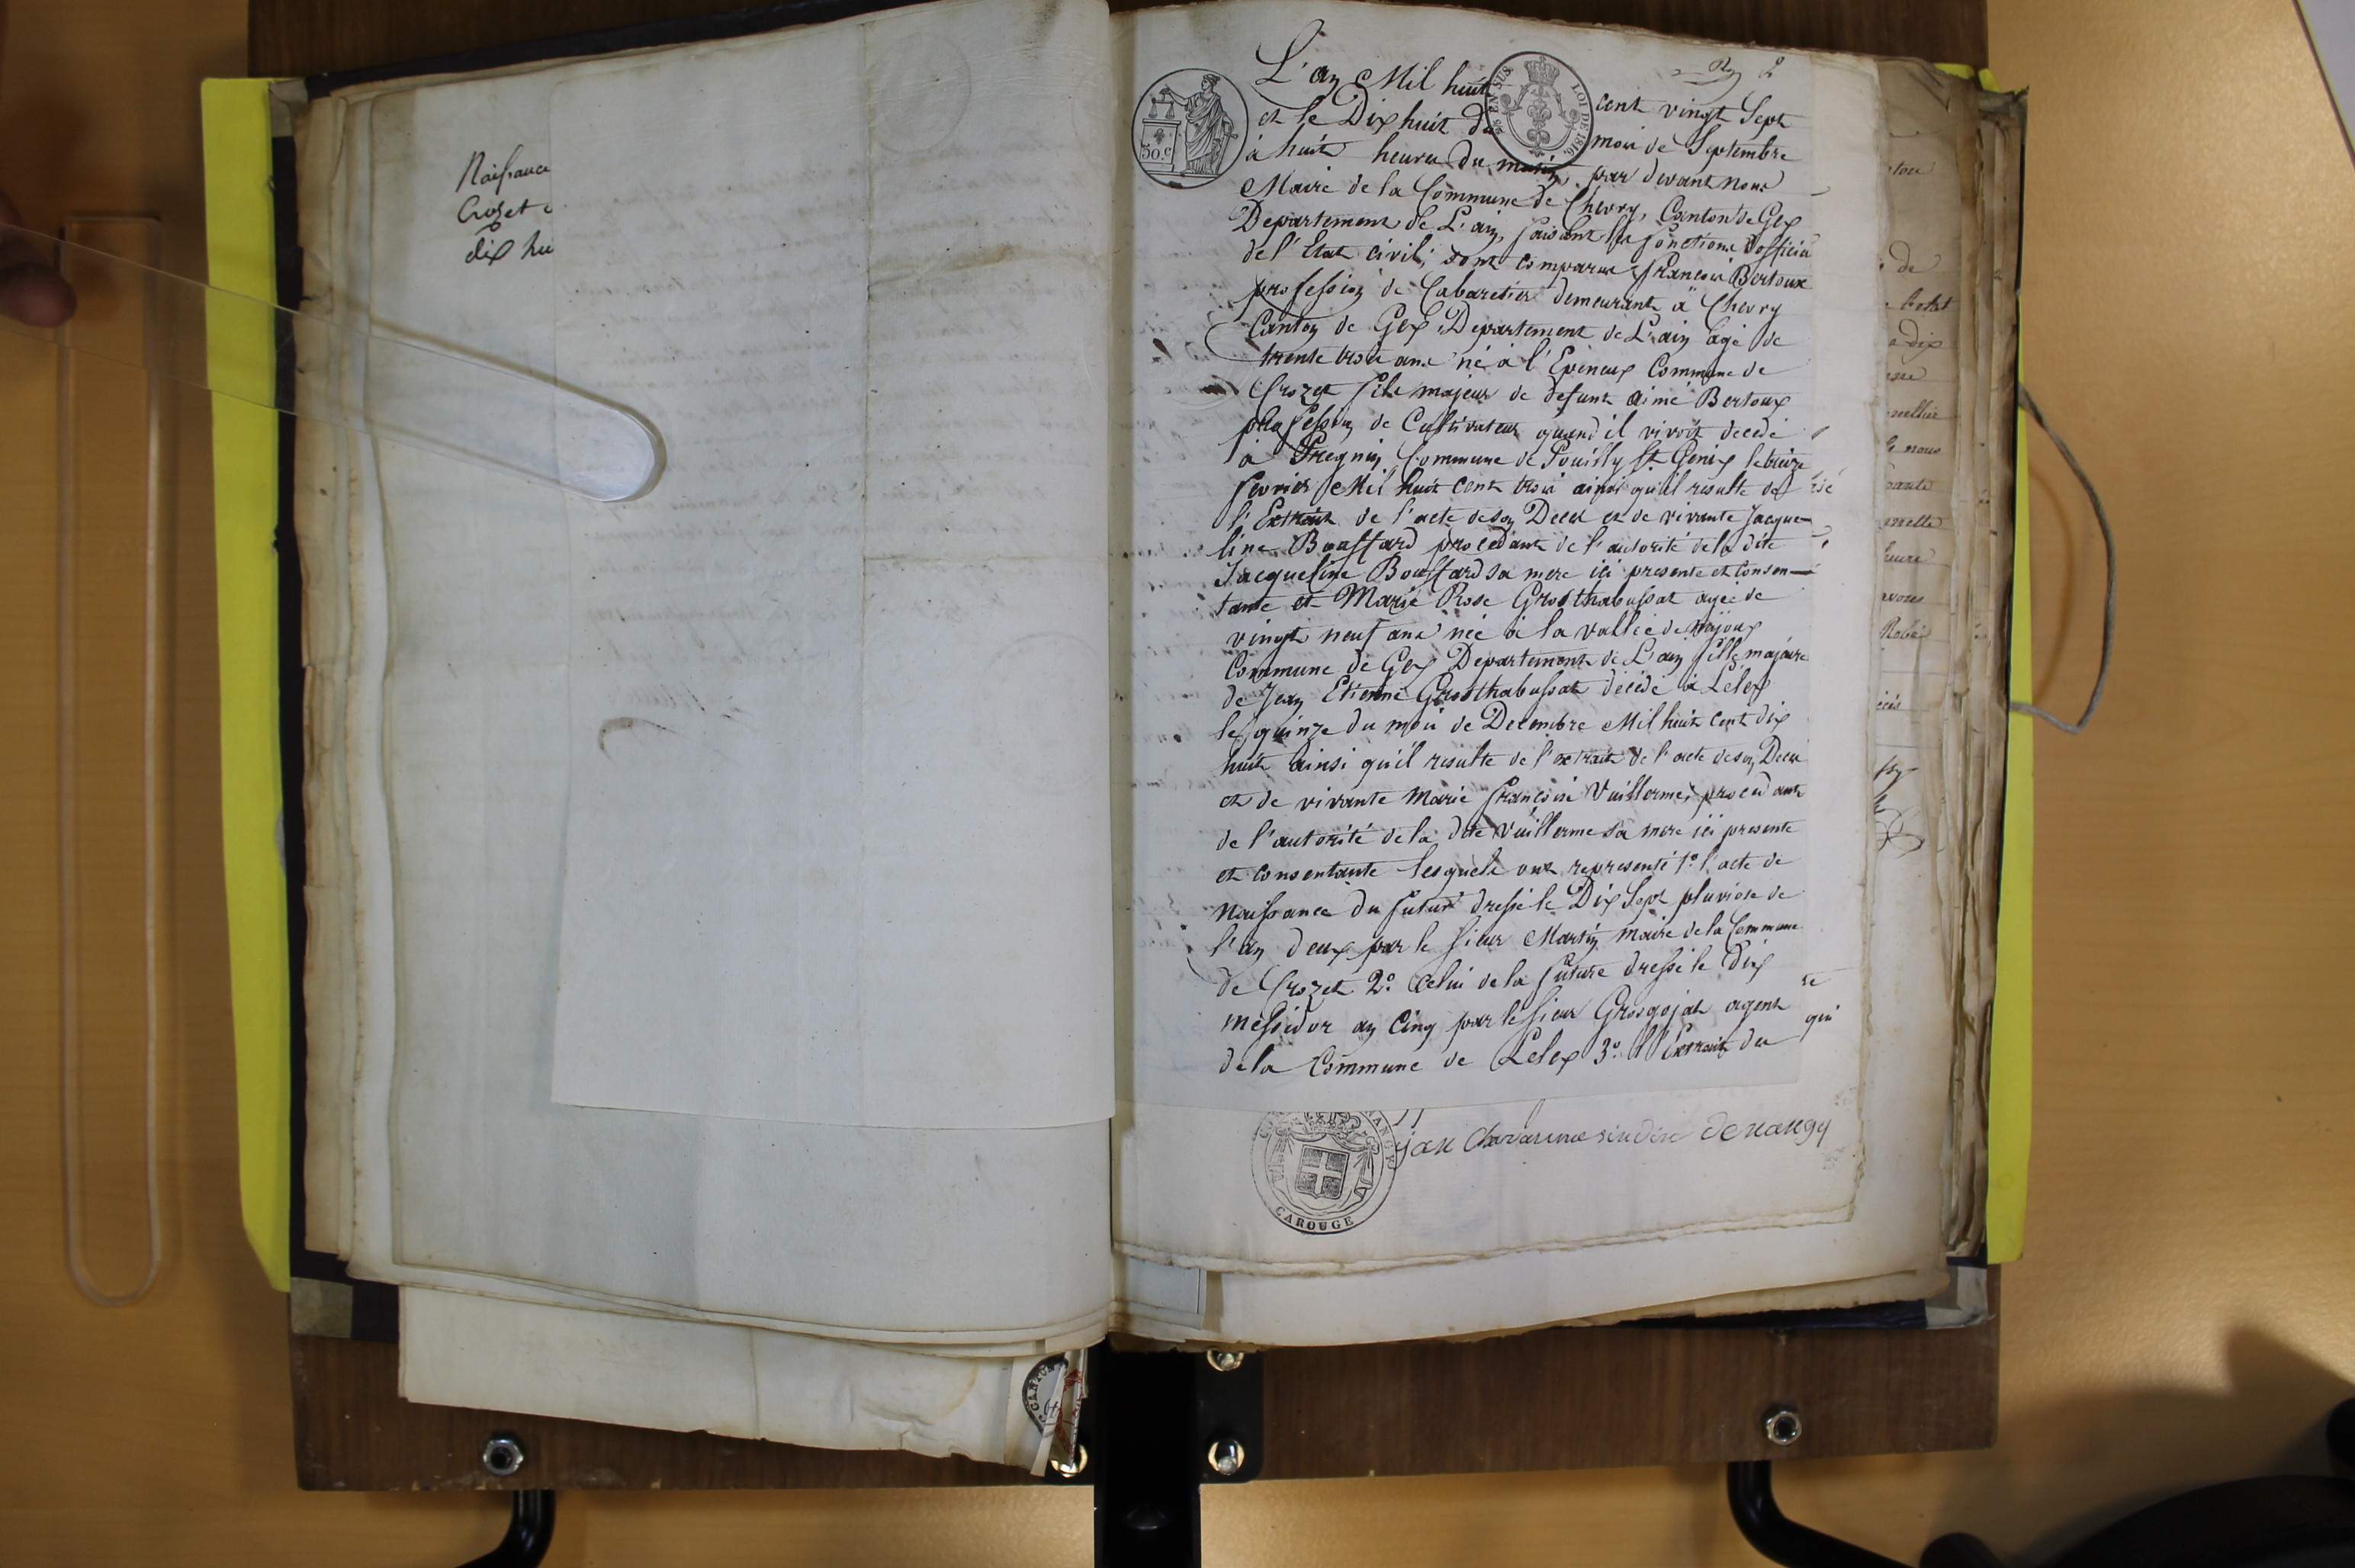 Naissance
Crozet
dix hu
L'an Mil huit cent vingt Sept
et le Dix huit du mois de Septembre
à huit heures du matin par devant nous
Maire de la Commune de Chevry, Canton de Gex
Departement de L'ain, faisant les fonctions d'officier
de l'Etat civil; sont comparus francois Bertoux
profession de Cabaretier demeurant à Chevry
Canton de Gex, Departement de L'ain agé de
trente trois ans né à l'Epeneux Commune de
Crozet fils majeur de defunt aimé Bertoux
profession de Cultivateur quand il vivoit decedé
à Pregnin Commune de Pouilly St Genix le treize
fevrier Mil huit cent trois ainsi qu'il resulte de
l'Extrait de l'acte de son Decès et de vivante Jacque-
line Bouffard procedant de l'autorité de la dite
Jacqueline Bouffard sa mere ici presente et Consen-
tante et Marie Rose Grosthabussat agée de
vingt neuf ans née à la vallée de mijoux
Commune de Gex Departement de L'ain fille majeure
de Jean Etienne Grosthabussat decedé à Lelex
le quinze du mois de Decembre Mil huit cent dix
huit ainsi qu'il resulte de l'extrait de l'acte de son Decès
et de vivante Marie françoise Vuillerme, procedante
de l'autorité de la dite Vuillerme sa mere ici presente
et consentante lesquels ont representé 1° l'acte de
naissance du futur dressé le Dix Sept pluviose de
l'an deux par le sieur Martin maire de la Commune
de Crozet 2° Celui de la future dressé le dix
messidor an Cinq par le sieur Grosgojat agent
de la Commune de Lelex 3° l'Extrait du
50.c
EN SUS
LOI DE 1816.
jan Chavanne sindic de nangy
CAROUGE
tou
de
dix
nous
heure
qui